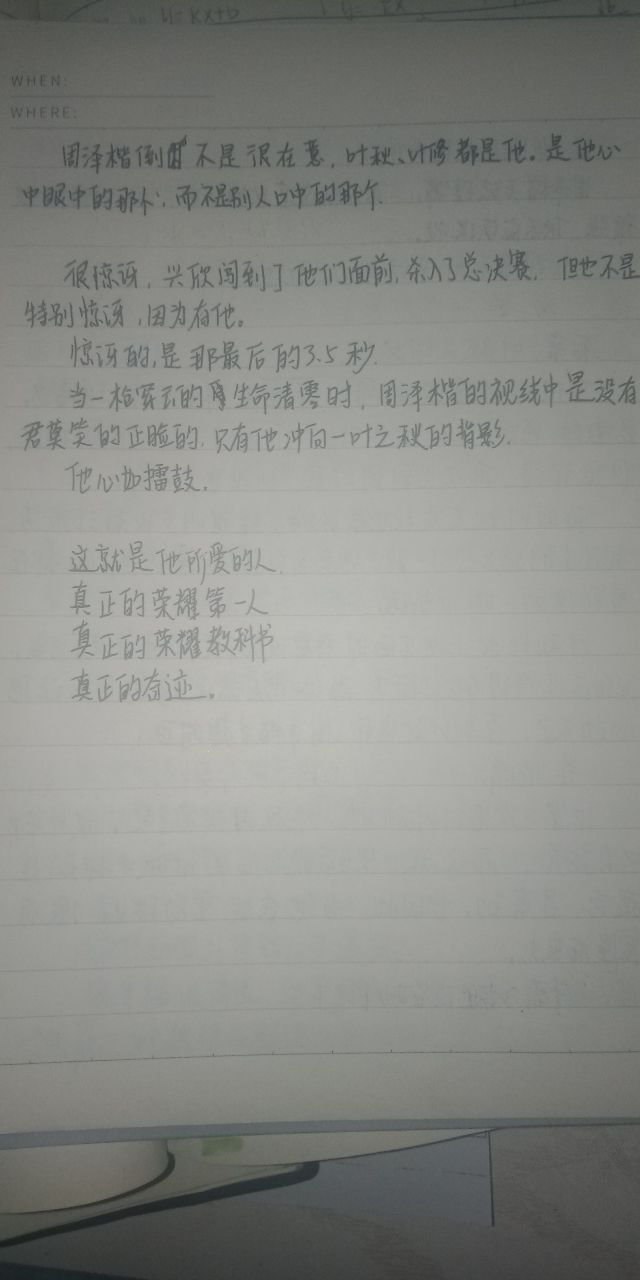 y=kx+b
WHEN:
WHERE:
周泽楷倒不是很在意，叶秋、叶修都是他。是他心
中眼中的那个，而不是别人口中的那个.
很惊讶，兴欣闯到了他们面前，杀入了总决赛．但也不是
特别惊讶，因为有他。
惊讶的，是那最后的3.5秒.
当一枪穿云的生命清零时，周泽楷的视线中是没有
君莫笑的正脸的．只有他冲向一叶之秋的背影．
他心如擂鼓．
这就是他所爱的人．
真正的荣耀第一人
真正的荣耀教科书
真正的奇迹。